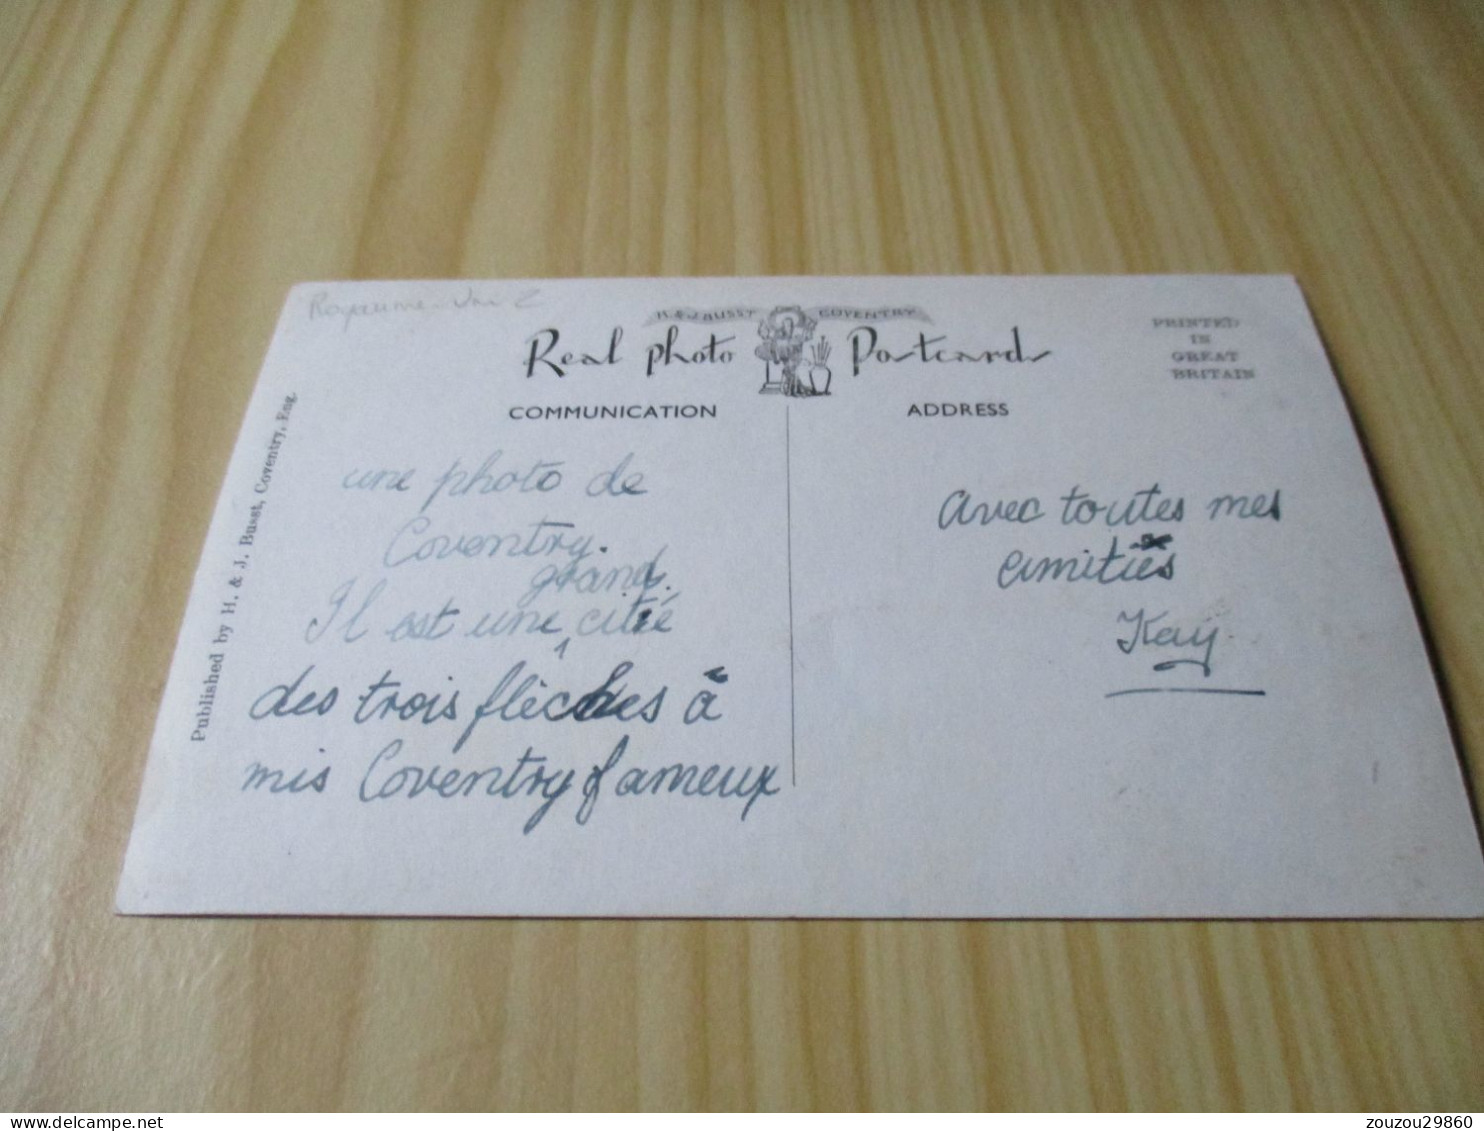 Royaume-Uni 2
H & J BUSST COVENTRY
Real photo Postcards
PRINTED
IN
GREAT
BRITAIN
COMMUNICATION
ADDRESS
Published by H. & J. Busst, Coventry, Eng.
une photo de
Coventry.
grand
Il est une citié
des trois flèches à
mis Coventry fameux
Avec toutes mes
amitiés
Kay
zouzou29860